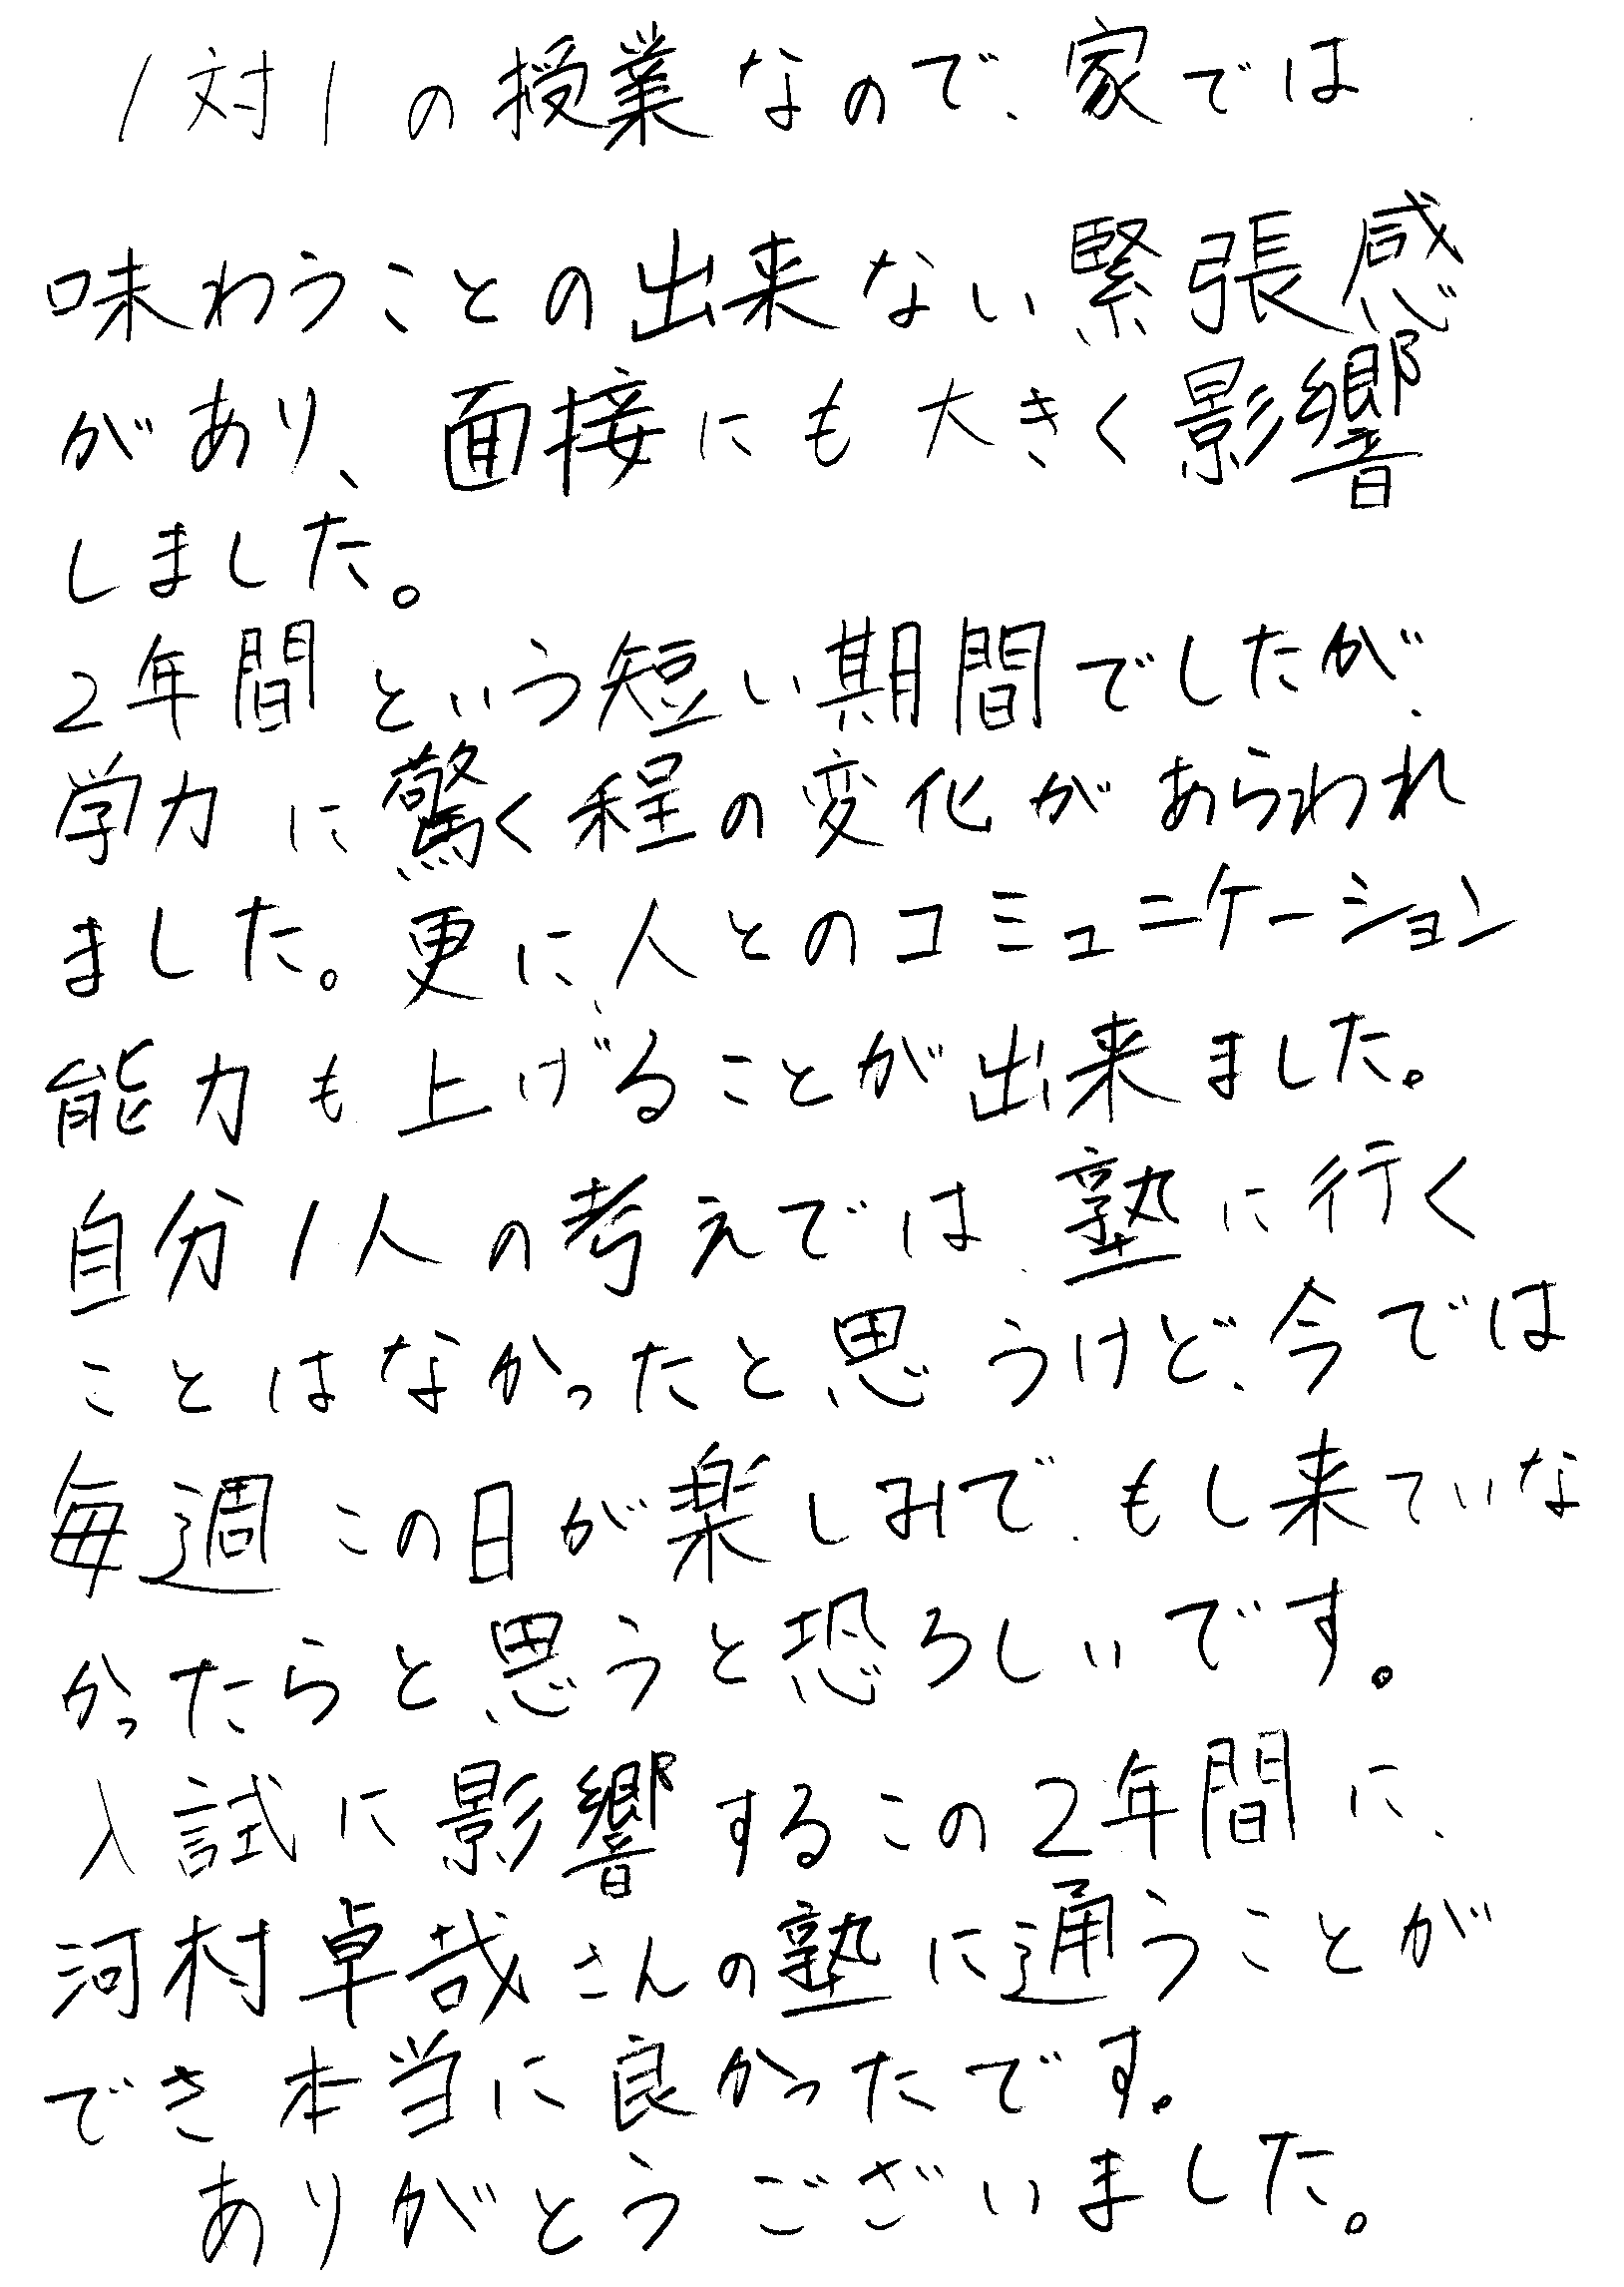 1対1の授業なので、家では
味わうことの出来ない緊張感
があり、面接にも大きく影響
しました。
2年間という短い期間でしたが、
学力に驚く程の変化があらわれ
ました。更に、人とのコミュニケーション
能力も上げることが出来ました。
自分1人の考えでは、塾に行く
ことはなかったと思うけど、今では
毎週この日が楽しみで、もし来ていな
かったらと思うと恐ろしいです。
入試に影響するこの2年間に、
河村卓哉さんの塾に通うことが
でき本当に良かったです。
ありがとうございました。